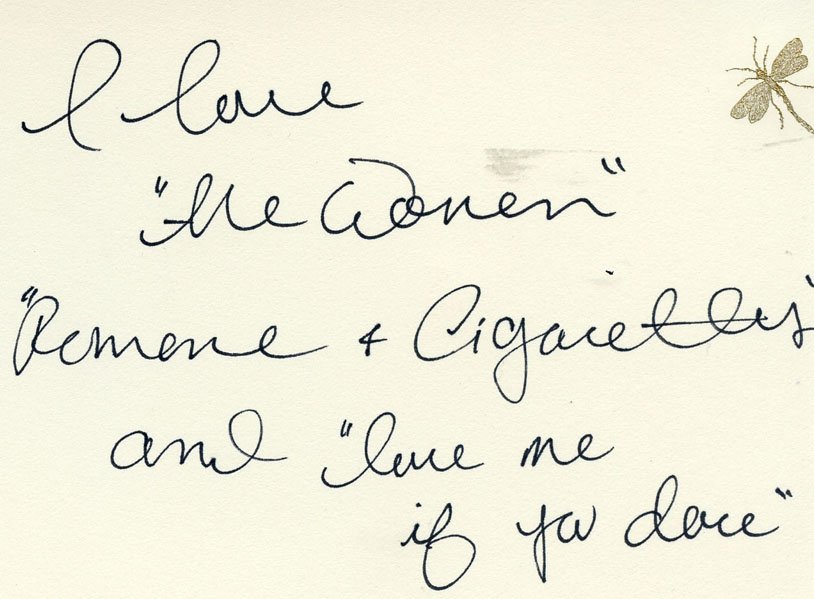 I love
"The Women"
"Romance & Cigarettes"
and "love me
if you dare"